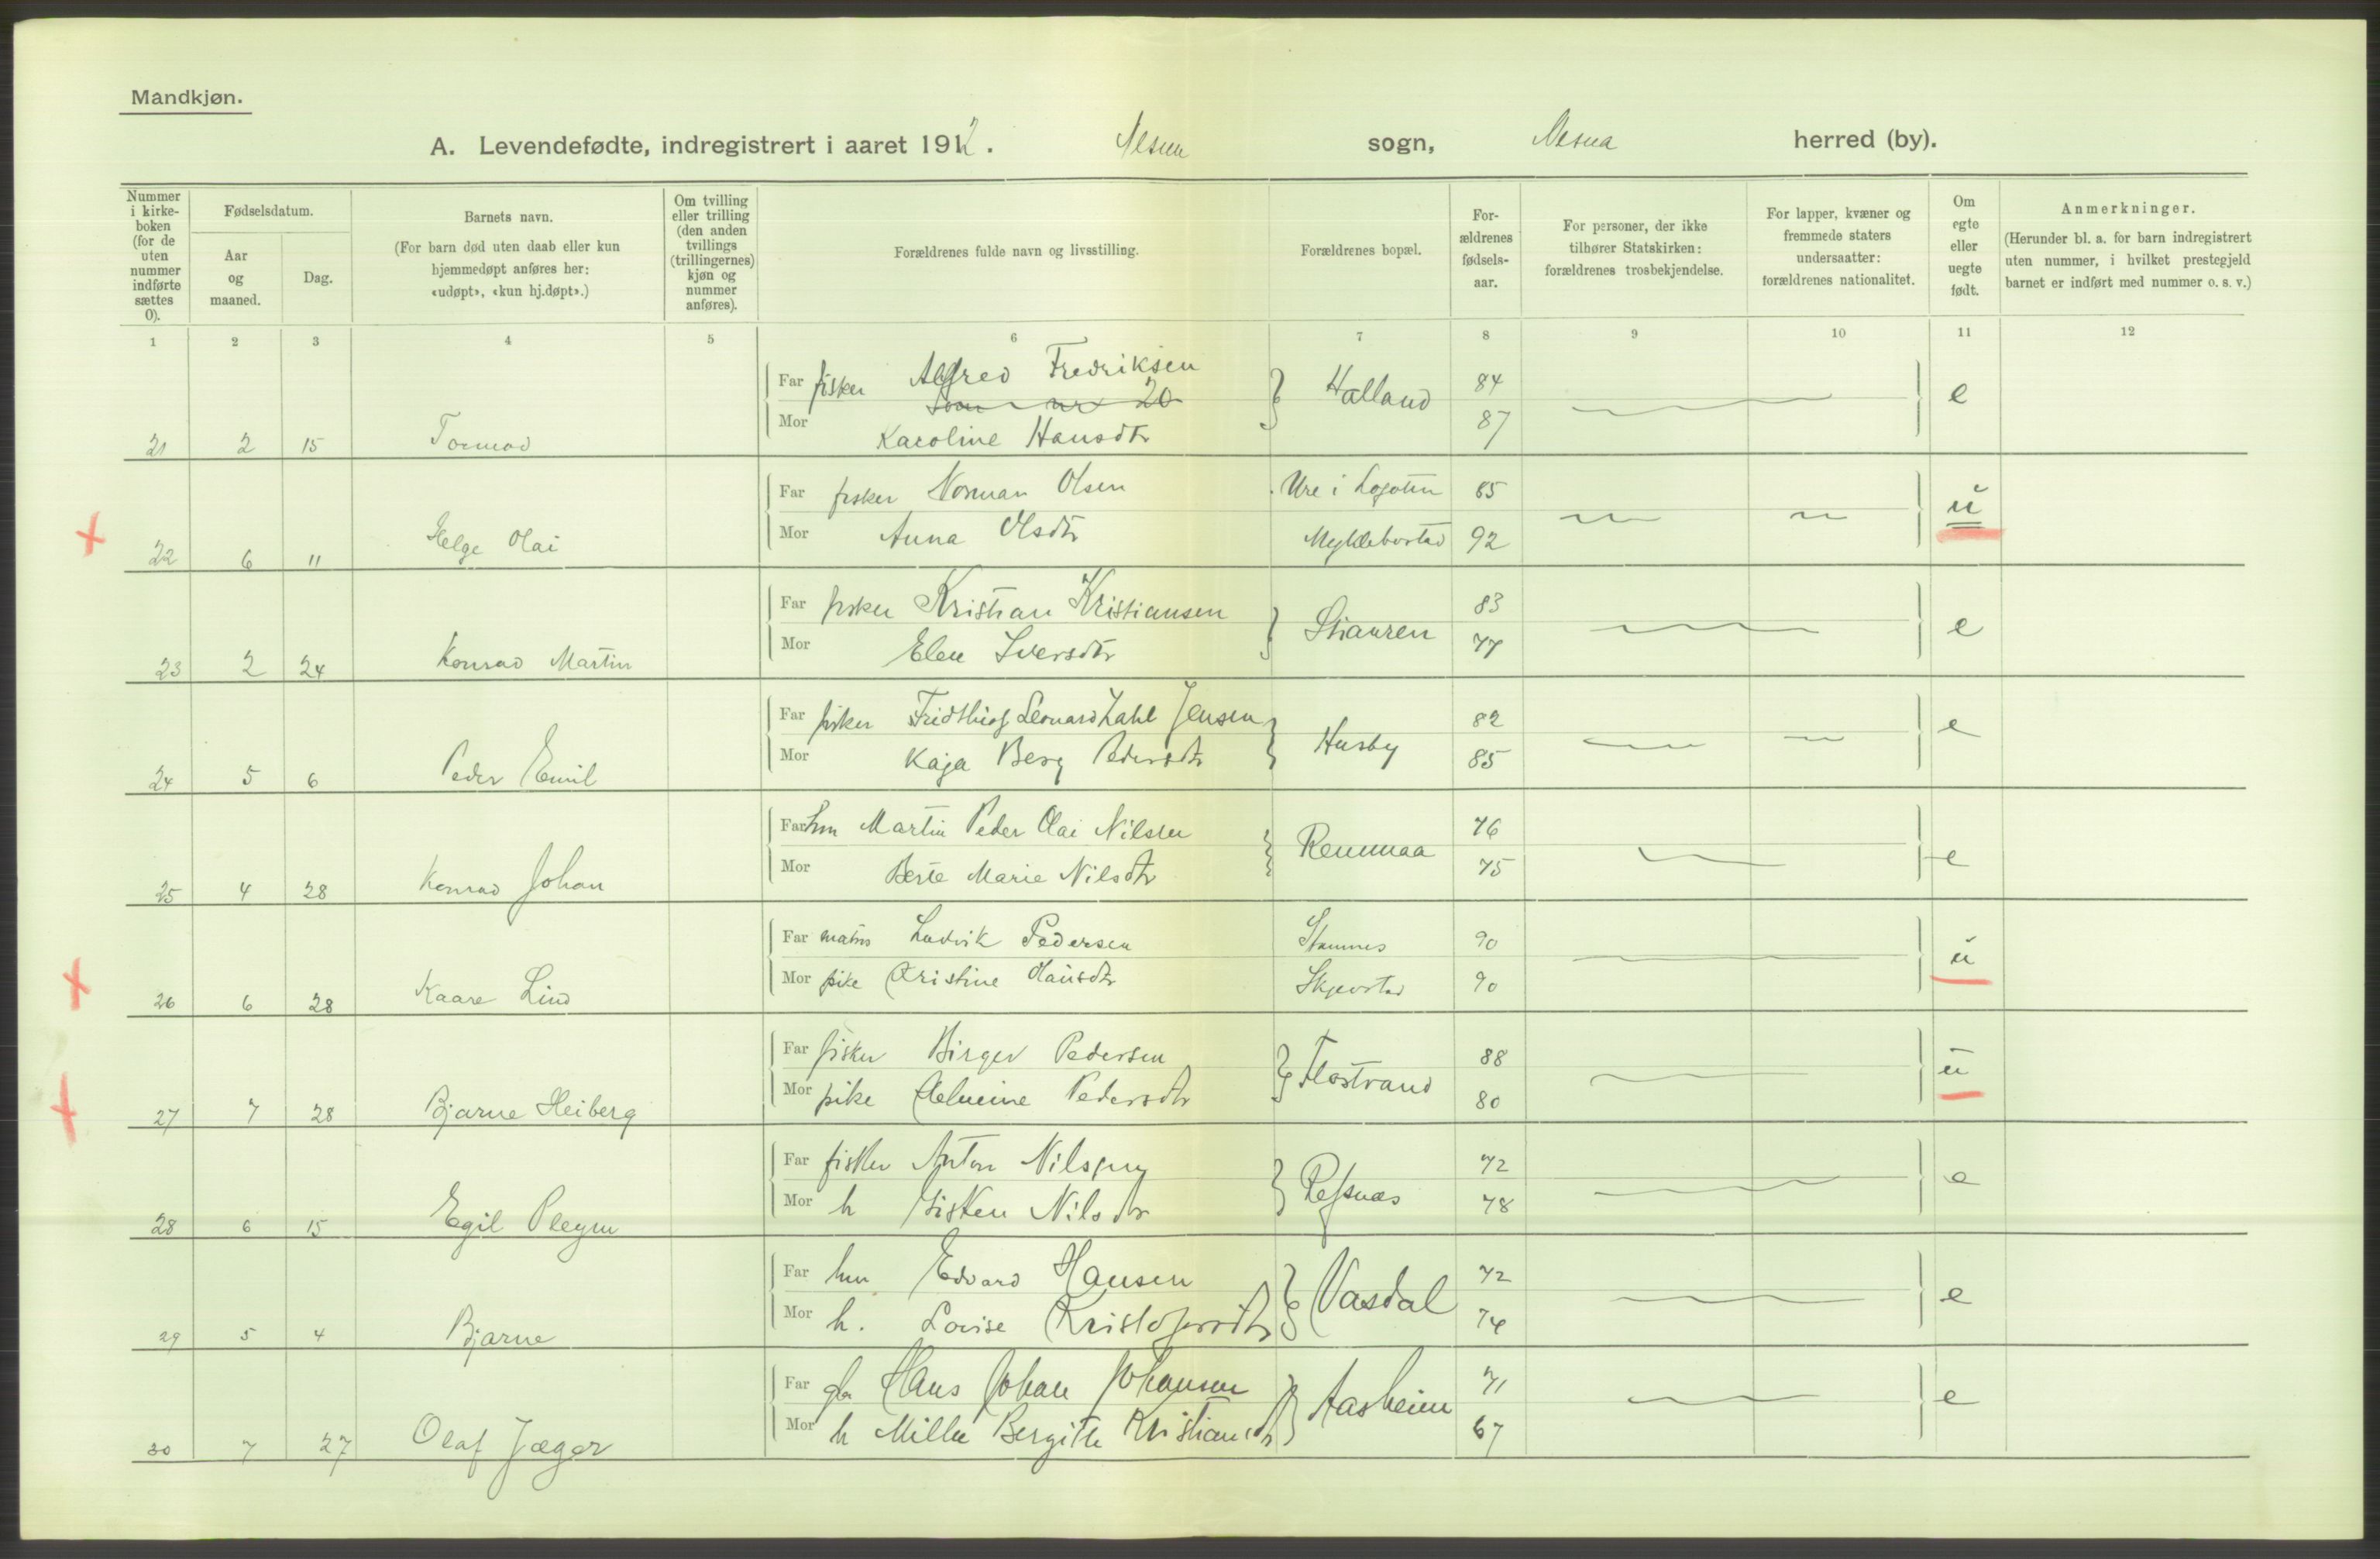 Mandkjøn.
A. Levendefødte, indregistrert i aaret 1912. Nesna sogn, Nesna herred (by).
Nummer i kirke- boken (for de uten nummer indførte sættes 0).
Fødselsdatum.
Aar og maaned.
Dag.
Barnets navn.
(For barn død uten daab eller kun hjemmedøpt anføres her: «udøpt», «kun hj.døpt».)
Om tvilling eller trilling (den anden tvillings (trillingernes) kjøn og nummer anføres).
Forældrenes fulde navn og livsstilling.
Forældrenes bopæl.
For- ældrenes fødsels- aar.
For personer, der ikke tilhører Statskirken: forældrenes trosbekjendelse.
For lapper, kvæner og fremmede staters undersaatter: forældrenes nationalitet.
Om egte eller uegte født.
Anmerkninger.
(Herunder bl. a. for barn indregistrert uten nummer, i hvilket prestegjeld barnet er indført med nummer o. s. v.)
1 2 3 4 5 6 7 8 9 10 11 12
Far fisker Alfred Fredriksen Halland 84 e
som nr 20
Mor Karoline Hansdtr 87
21 2 15 Tormod
Far fisker Norman Olsen Ure i Lofoten 85 u
Mor Anna Olsdtr Myklebostad 92
22 6 11 Helge Olai
Far fisker Kristian Kristiansen 83 e
Mor Elen Iversdtr 77
23 2 24 Konrad Martin
Far fisker Fridthiof Leonard Zahl Jensen Husby 82 e
Mor Kaja Berg Pedersdtr 85
24 5 6 Peder Emil
Far Martin Peder Olai Nilsen Remmaa 76 e
Mor Berte Marie Nilsdtr 75
25 4 28 Konrad Johan
Far matros Ludvik Pedersen Stamnes 90 u
Mor pike Kristine Hansdtr 90
26 6 28 Kaare Lind
Far fisker Birger Pedersen Flostrand 88 u
Mor pike Helmine Pedersdtr 80
27 7 28 Bjarne Heiberg
Far fisker Anton Nilssen 72 e
Mor h Sisken Nilsdtr 78
28 6 15 Egil Pleym
Far Edvard Hansen Vasdal 72 e
Mor h. Lovise Kristofersdtr 74
29 5 4 Bjarne
Far Hans Johan Johansen Aasheim 71 e
Mor h Milla Bergitte Kristiansdtr 67
30 7 27 Olaf Jæger